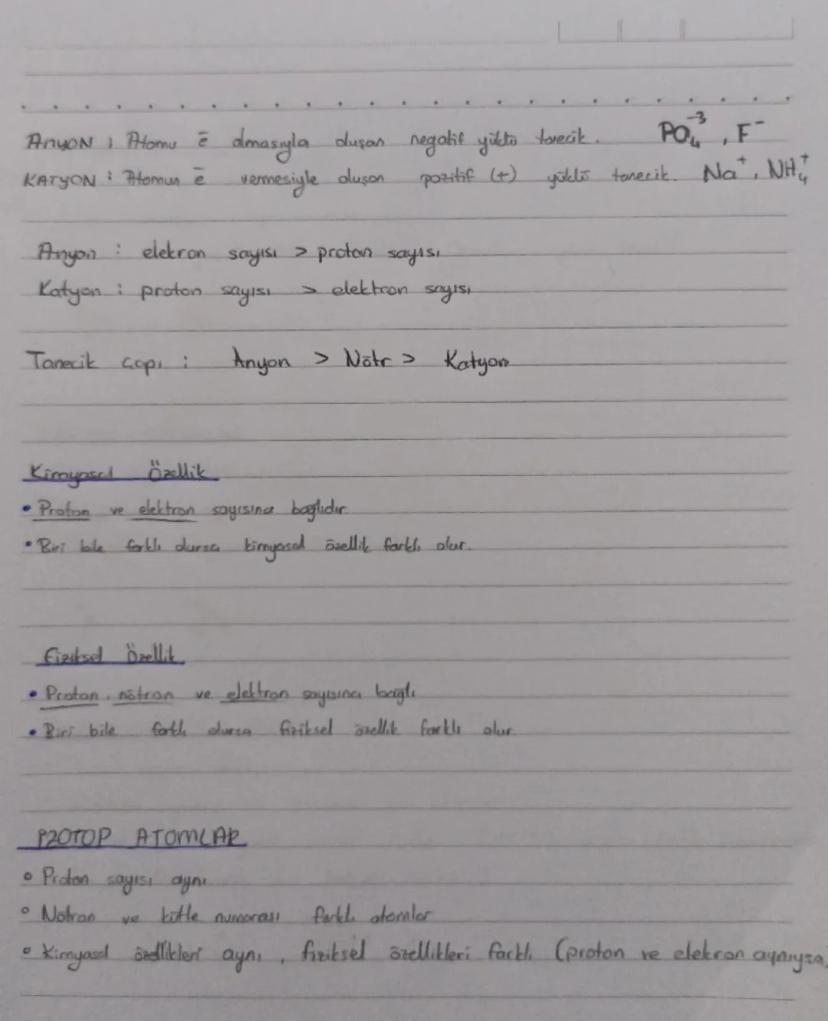 ANYON : Atomu ē almasıyla oluşan negatif yüklü tanecik. PO₄⁻³, F⁻
KATYON : Atomun ē vermesiyle oluşan pozitif (+) yüklü tanecik. Na⁺, NH₄⁺
Anyon : elekron sayısı > proton sayısı
Katyon : proton sayısı > elektron sayısı
Tanecik çapı : Anyon > Nötr > Katyon
Kimyasal Özellik
• Proton ve elektron sayısına bağlıdır
• Biri bile farklı olursa kimyasal özellik farklı olur.
Fiziksel Özellik
• Proton, nötron ve elektron sayısına bağlı
• Biri bile farklı olursa fiziksel özellik farklı olur.
İZOTOP ATOMLAR
° Proton sayısı aynı
° Nötron ve kütle numarası farklı atomlar
° Kimyasal özellikleri aynı, fiziksel özellikleri farklı (proton ve elekron aynıysa